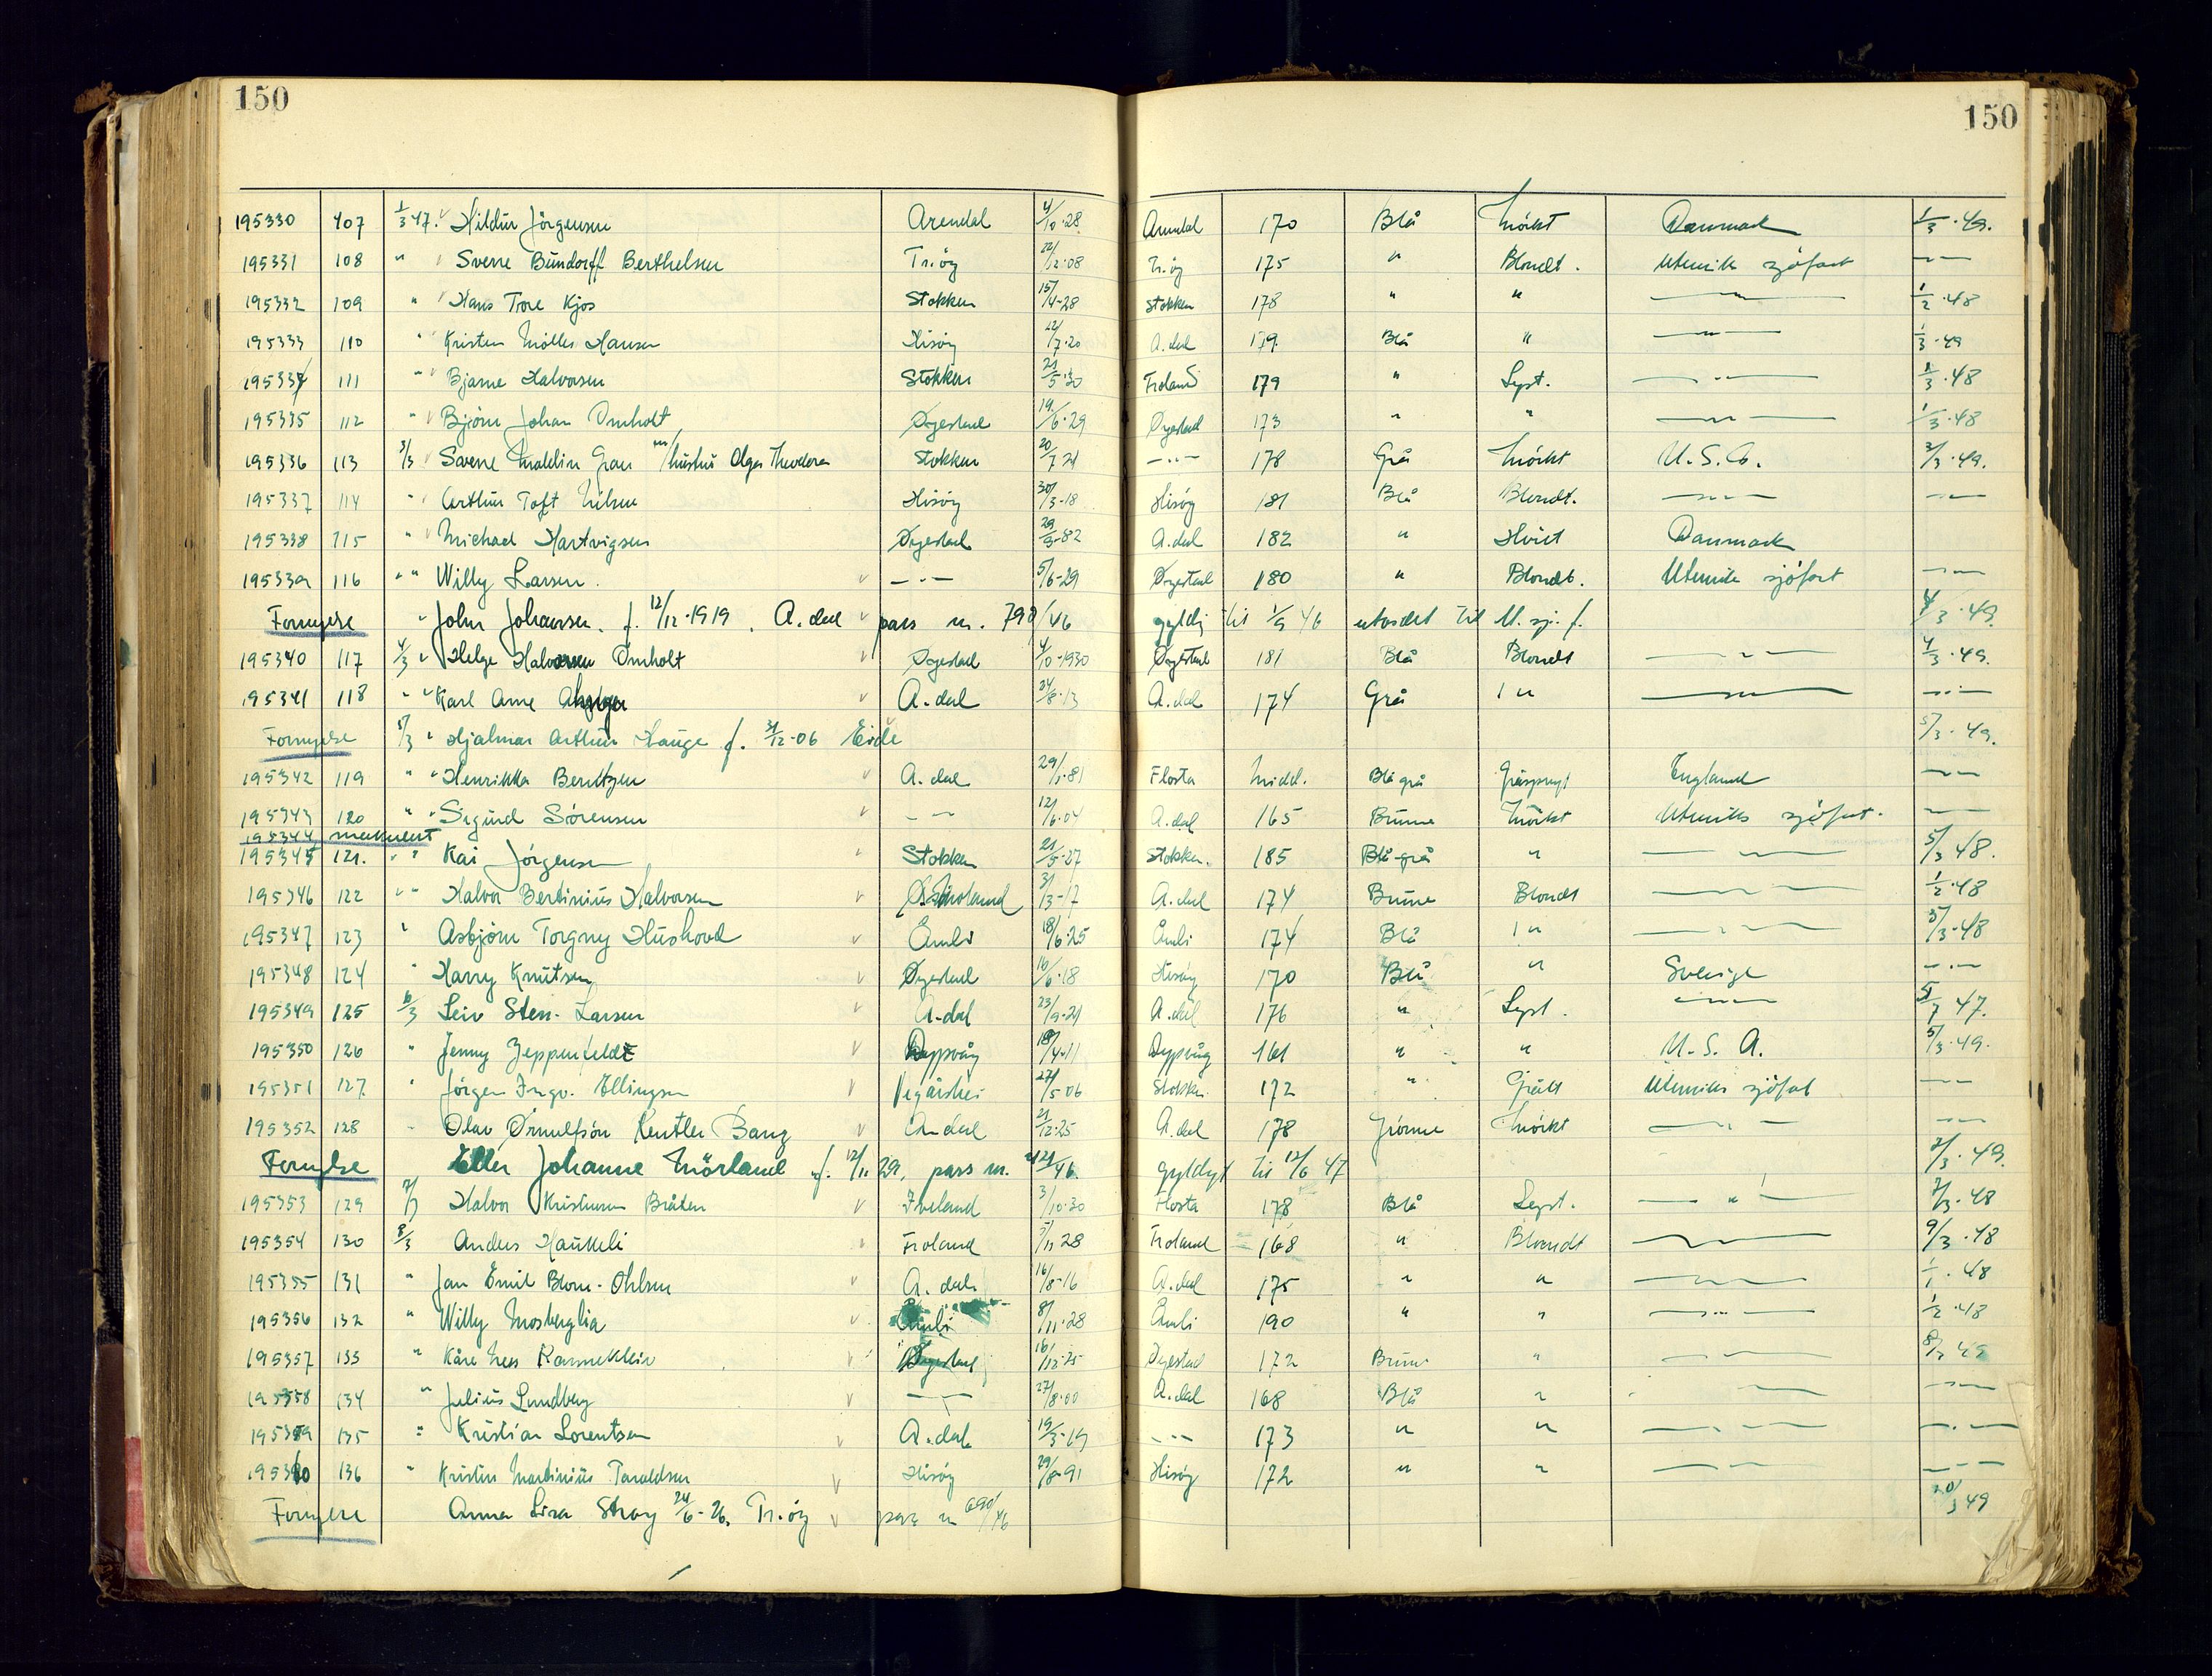 150 150
195330 407 1/3 47. Hildur Jörgensen Arendal 4/10-28 Arendal 170 Blå Mörkt Danmark 1/3-49.
195331 108 " Sverre Bundorff Berthelsen Tr.öy 22/12-08 Tr.öy 175 " Blondt. Utenriks sjöfart — " —
195332 109 " Hans Tore Kjos Stokken 15/4-28 Stokken 178 " " — " — 1/2-48
195333 110 " Kristen Möller Hansen Hisöy 12/7-20 A.dal 179. Blå " — " — 1/3-49
195334 111 " Bjarne Halvorsen Stokken 21/5-30 Froland 179 " Lyst. — " — 1/3-48
195335 112 " Björn Johan Omholt Øyestad 19/6-29 Øyestad 173 " " — " — 1/3-48
195336 113 3/3 Sverre Grau m/hustru Olga Theodora Stokken 20/7 21 — " — 178 Grå Mörkt U.S.A. 3/3-49.
195337 114 " Arthur Toft Nilsen Hisöy 30/3-18 Hisöy 181 Blå Blondt. — " — — " —
195338 115 " Michael Hartvigsen Øyestad 29/3-82 A.dal 182 " Hvitt Danmark
195339 116 " " Willy Larsen. — " — 5/6-29 Øyestad 180 " Blondt. Utenriks sjöfart — " —
Fornyelse " John Johansen. f. 12/12-1919. A.dal pass nr. 790/46 gyldig til 1/9 46 utvidet til U. sj. f. 4/3-49.
195340 117 4/3 " Helge Halvorsen Omholt Øyestad 4/10-1930 Øyestad 181 Blå Blondt — " — 4/3-49.
195341 118 " " Karl Arne A.dal 24/8-13 A.dal 174 Grå " — " — — " —
Fornyelse 5/3 " Hjalmar Arthur Hauge f. 31/12-06 Eide 5/3-49.
195342 119 " " Henrikka Berntzen A.dal 29/1-81 Flosta Midd. Blågrå Gråsprengt England — " —
195343 120 " " Sigurd Sörensen — " — 12/6-04 A.dal 165 Brune Mörkt Utenriks sjöfart. — " —
195344 makulert
195345 121. " " Kai Jörgensen Stokken 21/5-27 Stokken. 185 Blå-grå " — " — 5/3 48.
195346 122 " " Halvor Bertinius Halvorsen 3/3-17 A.dal 174 Brune Blondt — " — 1/2-48
195347 123 " Asbjörn Torgny Hushovd Åmli 18/6-25 Åmli 174 Blå " — " — 5/3-48
195348 124 " Harry Knutsen Øyestad 16/6-18 Hisöy 170 Blå " Sverige — " —
195349 125 6/3 Leiv Sten-Larsen A.dal 23/9-21 A.dal 176 " Lyst. — " — 5/7 47.
195350 126 " Jenny Zeppenfeldt Dypvåg 18/4-11 Dypvåg 161 " " U.S.A. 5/3-49.
195351 127. " Jörgen Ingv. Ellingsen Vegårshei 27/5 06 Stokken. 172 " Grått Utenriks sjöfart — " —
195352 128 " Olav Ørnulfsön Kentler Bang A.dal 21/12-25 A.dal 178 Grönne Mörkt — " — — " —
Fornyelse Ellen Johanne Mörland f. 12/11 29, pass nr. gyldigt til 12/6 47 7/3-49.
195353 129 7/3 Halvor Kristensen Bråten Iveland 3/10-30 Flosta 178 Blå Lyst. — " — 7/3-48
195354 130 8/3 Anders Haukeli Froland 5/11 28 Froland 168 " Blondt — " — 9/3-48
195355 131 " Jan Emil Blom-Ohlsen A.dal 16/8-16 A.dal 175 " " — " — 1/1-48
195356 132 " Willy Mosberglia Åmli 8/11-28 Åmli 190 " " — " — 1/2-48
195357 133 " Kåre Ramseklev Øyestad 16/12-25 Øyestad 172 Brune " — " —
195358 134 " Julius Lundberg — " — 27/8-00 A.dal 168 Blå " — " — — " —
195359 135 " Kristian Lorentsen A.dal 19/3-19 — " — 173 " " — " — — " —
195360 136 " Kristen Martinius Taraldsen Hisöy 29/8-91 Hisöy 172 " " — " — — " —
Fornyelse Anna Lisa Stray 24/6-26. Tr.öy pass nr 690/46 20/3 49